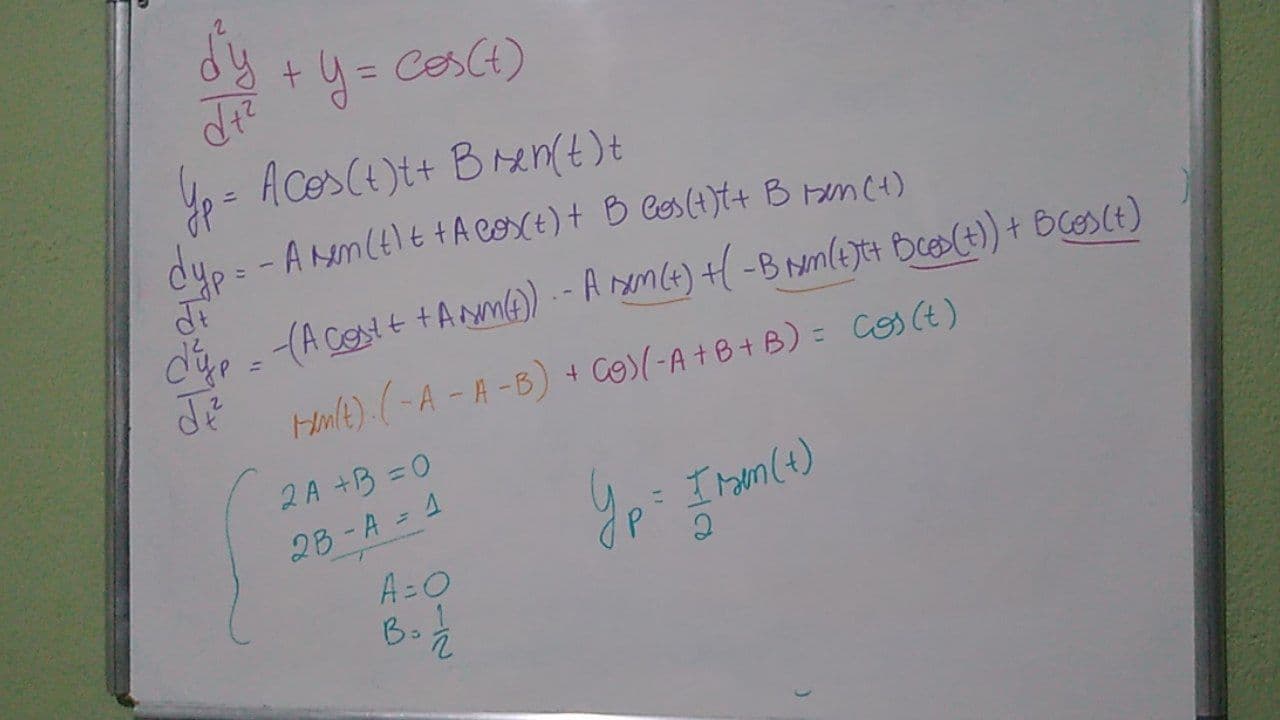 d²y/dt² + y = cos(t)
yp = A cos(t)t + B sen(t)t
dyp/dt = - A sen(t)t + A cos(t) + B cos(t)t + B sen(t)
d²yp/dt² = -(A cost t + A sen(t)) - A sen(t) + (-B sen(t)t + B cos(t)) + B cos(t)
sen(t).(-A - A - B) + cos(-A + B + B) = cos(t)
2A + B = 0
2B - A = 1
A = 0
B = 1/2
yp = t/2 sen(t)